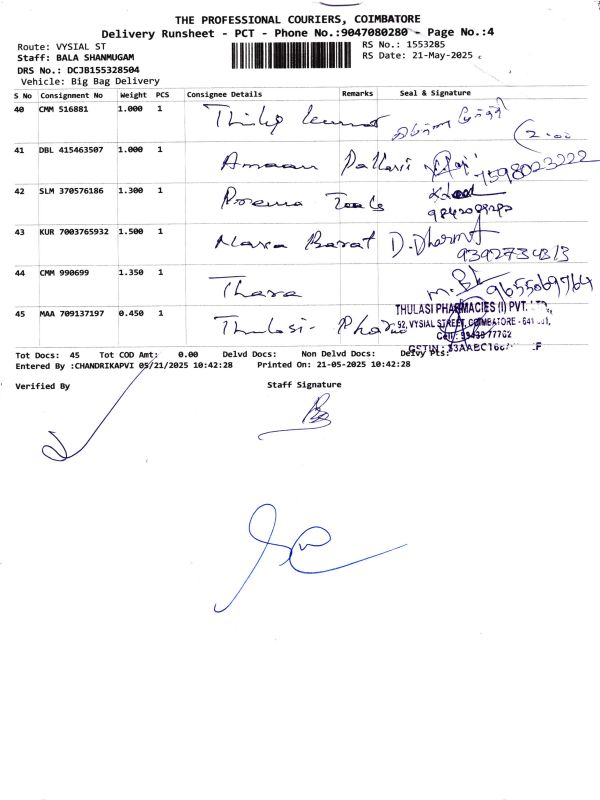 THE PROFESSIONAL COURIERS, COIMBATORE
Delivery Runsheet - PCT - Phone No.:9047080280 - Page No.:4
Route: VYSIAL ST
RS No.: 1553285
Staff: BALA SHANMUGAM
RS Date: 21-May-2025
DRS No.: DCJB155328504
Vehicle: Big Bag Delivery
S No Consignment No Weight PCS Consignee Details Remarks Seal & Signature
40 CMM 516881 1.000 1 Thilip kumar
2.00
41 DBL 415463507 1.000 1 Amaan Pallavi 7598023222
42 SLM 370576186 1.300 1 Porema Tools
9842089292
43 KUR 7003765932 1.500 1 Nava Barat D. Dharma
9392734313
44 CMM 990699 1.350 1 Thara 9655069764
45 MAA 709137197 0.450 1 Thulasi- Pharma
THULASI PHARMACIES (I) PVT. LTD.,
52, VYSIAL STREET, COIMBATORE - 641 001,
Cell :
GSTIN :
Tot Docs: 45 Tot COD Amt: 0.00 Delvd Docs: Non Delvd Docs: Delvy Pts:
Entered By :CHANDRIKAPVI 05/21/2025 10:42:28 Printed On: 21-05-2025 10:42:28
Verified By Staff Signature